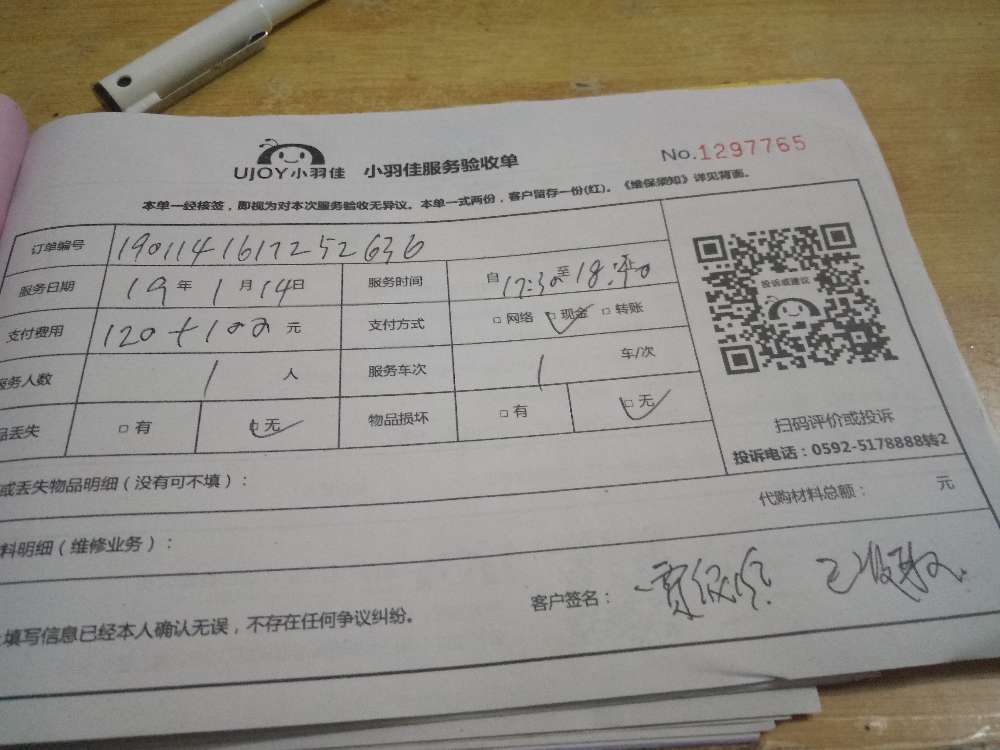 UJOY小羽佳 小羽佳服务验收单 No.1297765
本单一经核签，即视为对本次服务验收无异议。本单一式两份，客户留存一份(红)。《维保须知》详见背面。
订单编号 190114161725 2636
服务日期 19年1月14日 服务时间 自17:30至18:30止
支付费用 120+100元 支付方式 □网络 □现金 □转账
服务人数 1人 服务车次 1 车/次
品丢失 □有 □无 物品损坏 □有 □无
投诉或建议
扫码评价或投诉
投诉电话：0592-5178888转2
或丢失物品明细（没有可不填）：
料明细（维修业务）： 代购材料总额： 元
填写信息已经本人确认无误，不存在任何争议纠纷。 客户签名： 已收取